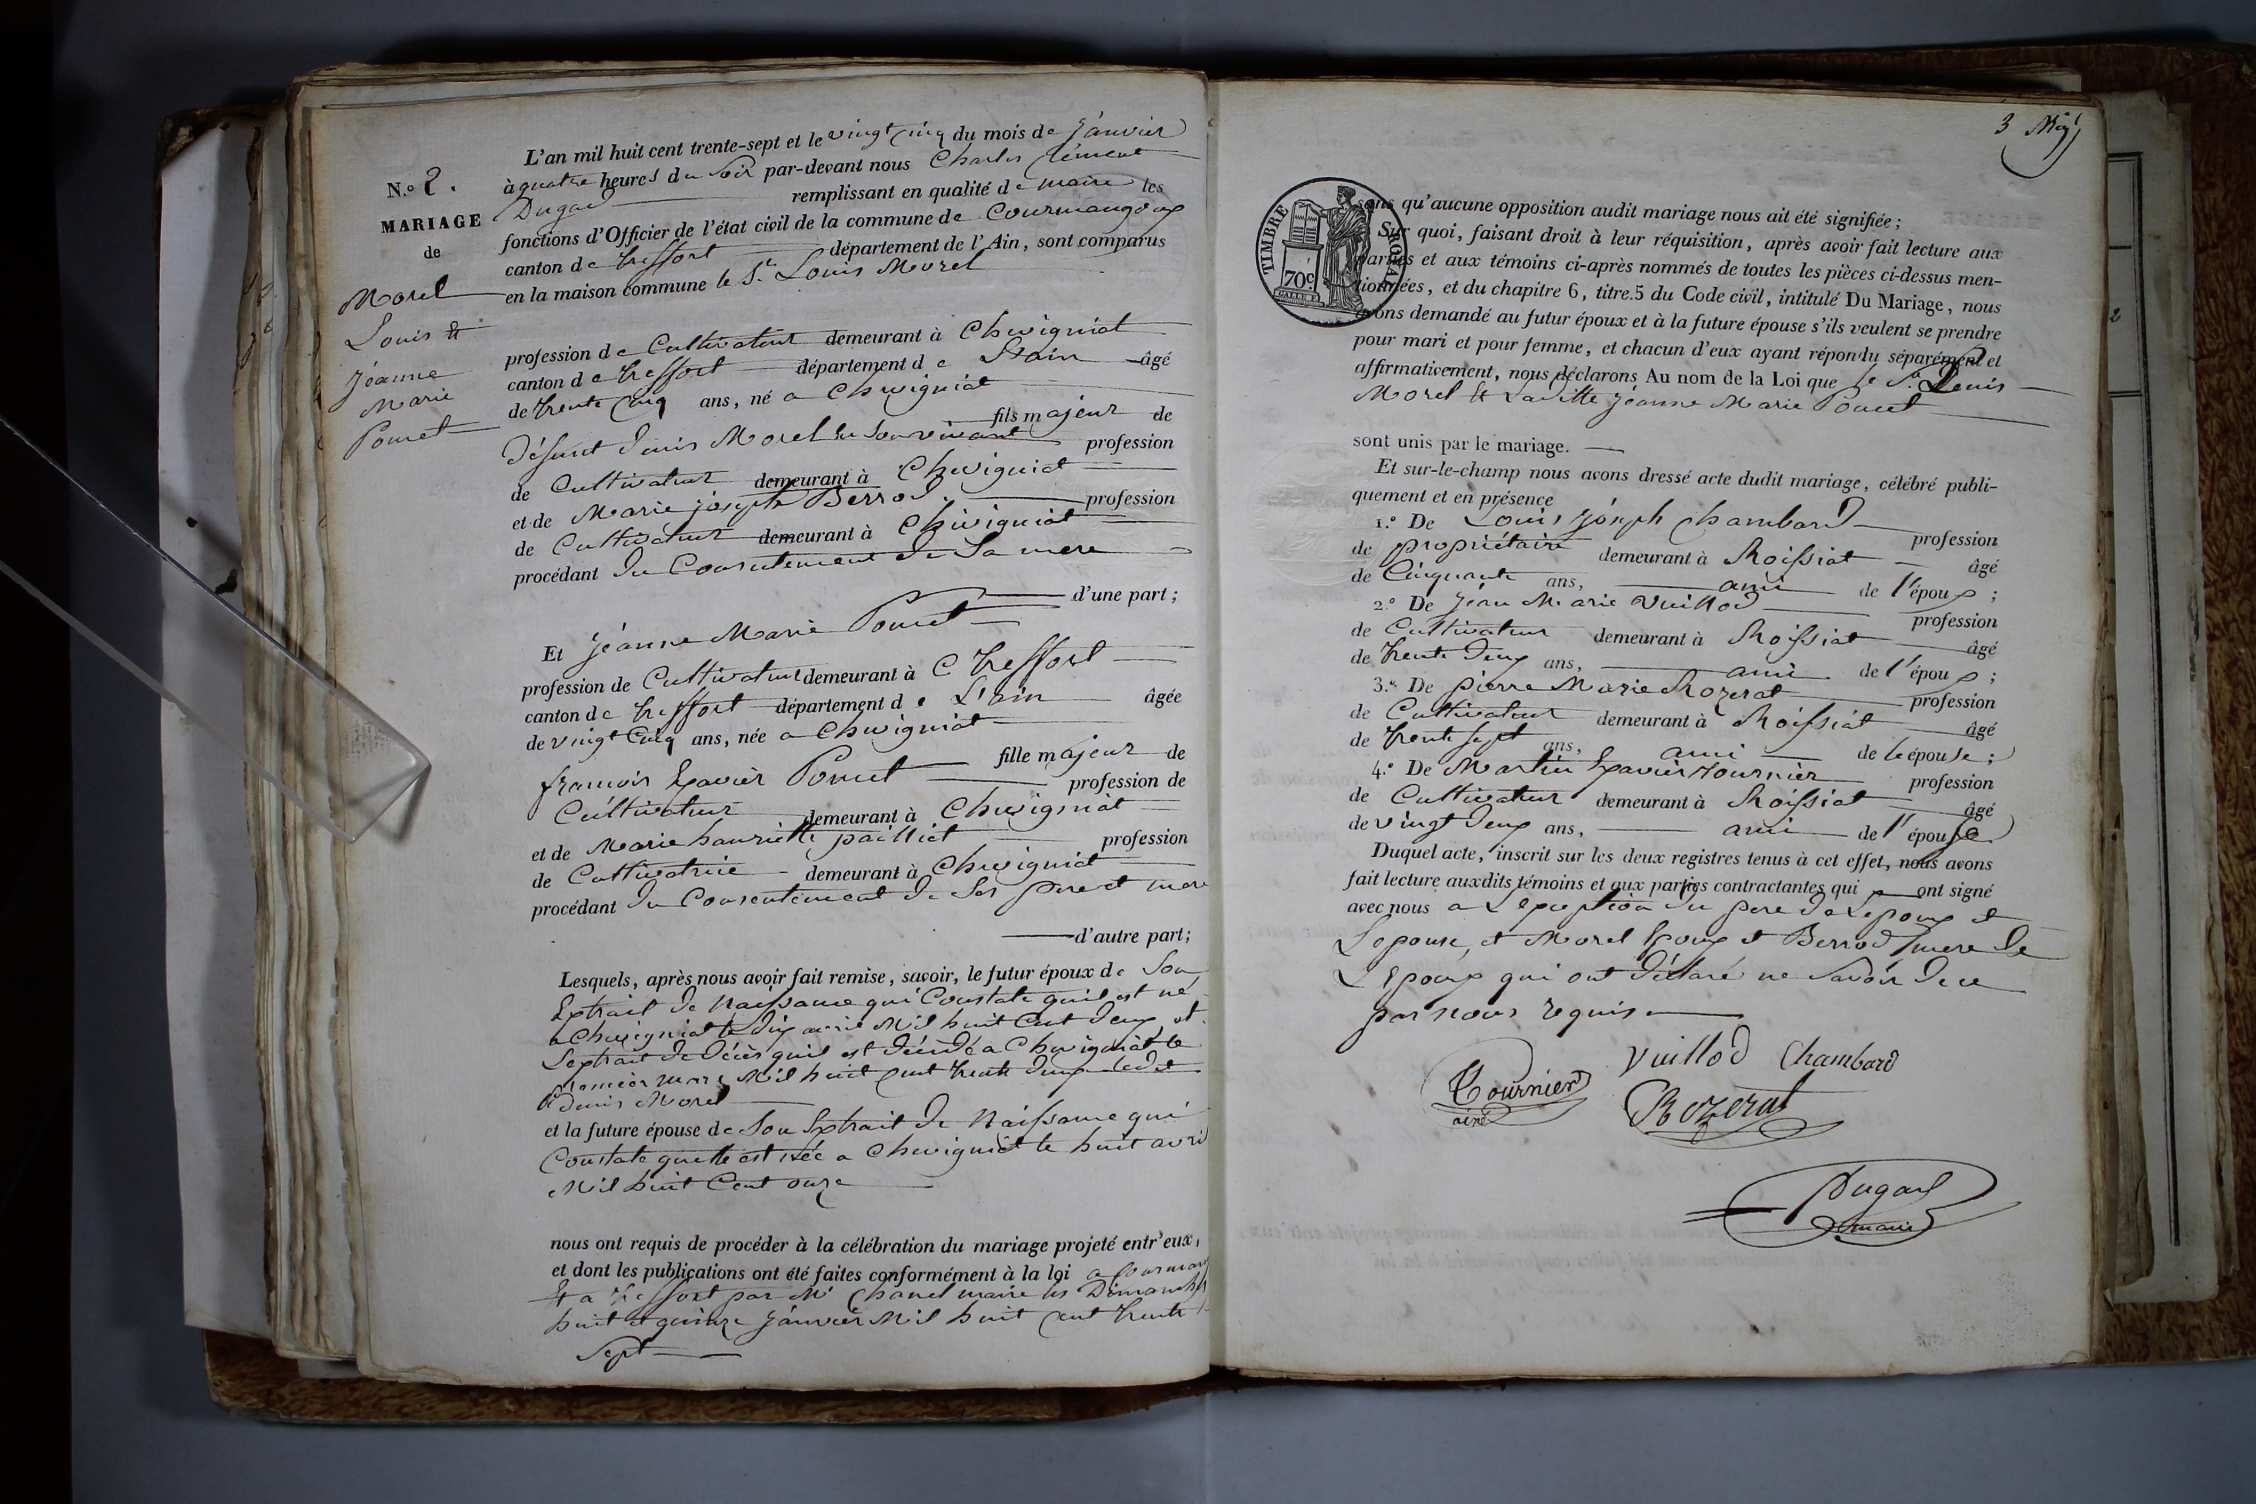 N.o 2.
MARIAGE
de
Morel
Louis et
Jeanne
Marie
Poncet
L'an mil huit cent trente-sept et le vingt cinq du mois de Janvier
à quatre heures du soir par-devant nous Charles Clément
Dugad remplissant en qualité de maire les
fonctions d'Officier de l'état civil de la commune de Courmangoux
canton de treffort département de l'Ain, sont comparus
en la maison commune le Sr Louis Morel
profession de Cultivateur demeurant à Chevigniat
canton de treffort département de L'ain âgé
de trente cinq ans, né a Chevigniat
fils majeur de
défunt denis Morel en son vivant profession
de Cultivateur demeurant à Chevigniat
et de Marie joseph Berrod profession
de Cultivateur demeurant à Chevigniat
procédant du Consentement de Sa mere
d'une part;
Et Jeanne Marie Poncet
profession de Cultivateur demeurant à treffort
canton de treffort département de L'ain âgée
de vingt cinq ans, née a Chevigniat
fille majeur de
francois Xavier Poncet profession de
Cultivateur demeurant à Chevigniat
et de Marie henriette pailliet profession
de Cultivatrice demeurant à Chevigniat
procédant du Consentement de Ses pere et mere
d'autre part;
Lesquels, après nous avoir fait remise, savoir, le futur époux de Son
Extrait de Naissance qui Constate quil est né
a Chevigniat le dix avril Mil huit Cent deux et
L'extrait de décès quil est décédé a Chevigniat le
premier mars Mil huit Cent trente deux ledit
denis Morel
et la future épouse de Son Extrait de Naissance qui
Constate quelle est née a Chevigniat le huit avril
Mil huit Cent onze
nous ont requis de procéder à la célébration du mariage projeté entr'eux,
et dont les publications ont été faites conformément à la loi a Courmang
Et a treffort par Mr Chanel maire les Dimanches
huit et quinze Janvier Mil huit Cent trente
Sept
3
TIMBRE ROYAL
70c
sans qu'aucune opposition audit mariage nous ait été signifiée;
Sur quoi, faisant droit à leur réquisition, après avoir fait lecture aux
parties et aux témoins ci-après nommés de toutes les pièces ci-dessus men-
tionnées, et du chapitre 6, titre.5 du Code civil, intitulé Du Mariage, nous
avons demandé au futur époux et à la future épouse s'ils veulent se prendre
pour mari et pour femme, et chacun d'eux ayant répondu séparément et
affirmativement, nous déclarons Au nom de la Loi que le Sr Louis
Morel Et Laditte Jeanne Marie Poncet
sont unis par le mariage.
Et sur-le-champ nous avons dressé acte dudit mariage, célébré publi-
quement et en présence
1.o De Louis Joseph Chambard profession
de propriétaire demeurant à Roissiat âgé
de Cinquante ans, ami de l'époux;
2.o De Jean Marie Vuillod profession
de Cultivateur demeurant à Roissiat âgé
de trente deux ans, ami de l'époux;
3.o De pierre Marie Rozerat profession
de Cultivateur demeurant à Roissiat âgé
de trente sept ans, ami de lépouse;
4.o De Martin Xavier tournier profession
de Cultivateur demeurant à Roissiat âgé
de vingt deux ans, ami de l'épouse
Duquel acte, inscrit sur les deux registres tenus à cet effet, nous avons
fait lecture auxdits témoins et aux parties contractantes qui ont signé
avec nous a L'exception du pere de Lepoux et
Lepouse, et Morel Epoux et Berrod mere de
L'Epoux qui ont déclaré ne Savoir de ce
par nous requis
Vuillod Chambard
Tournier
ainé
Rozerat
Dugad
maire